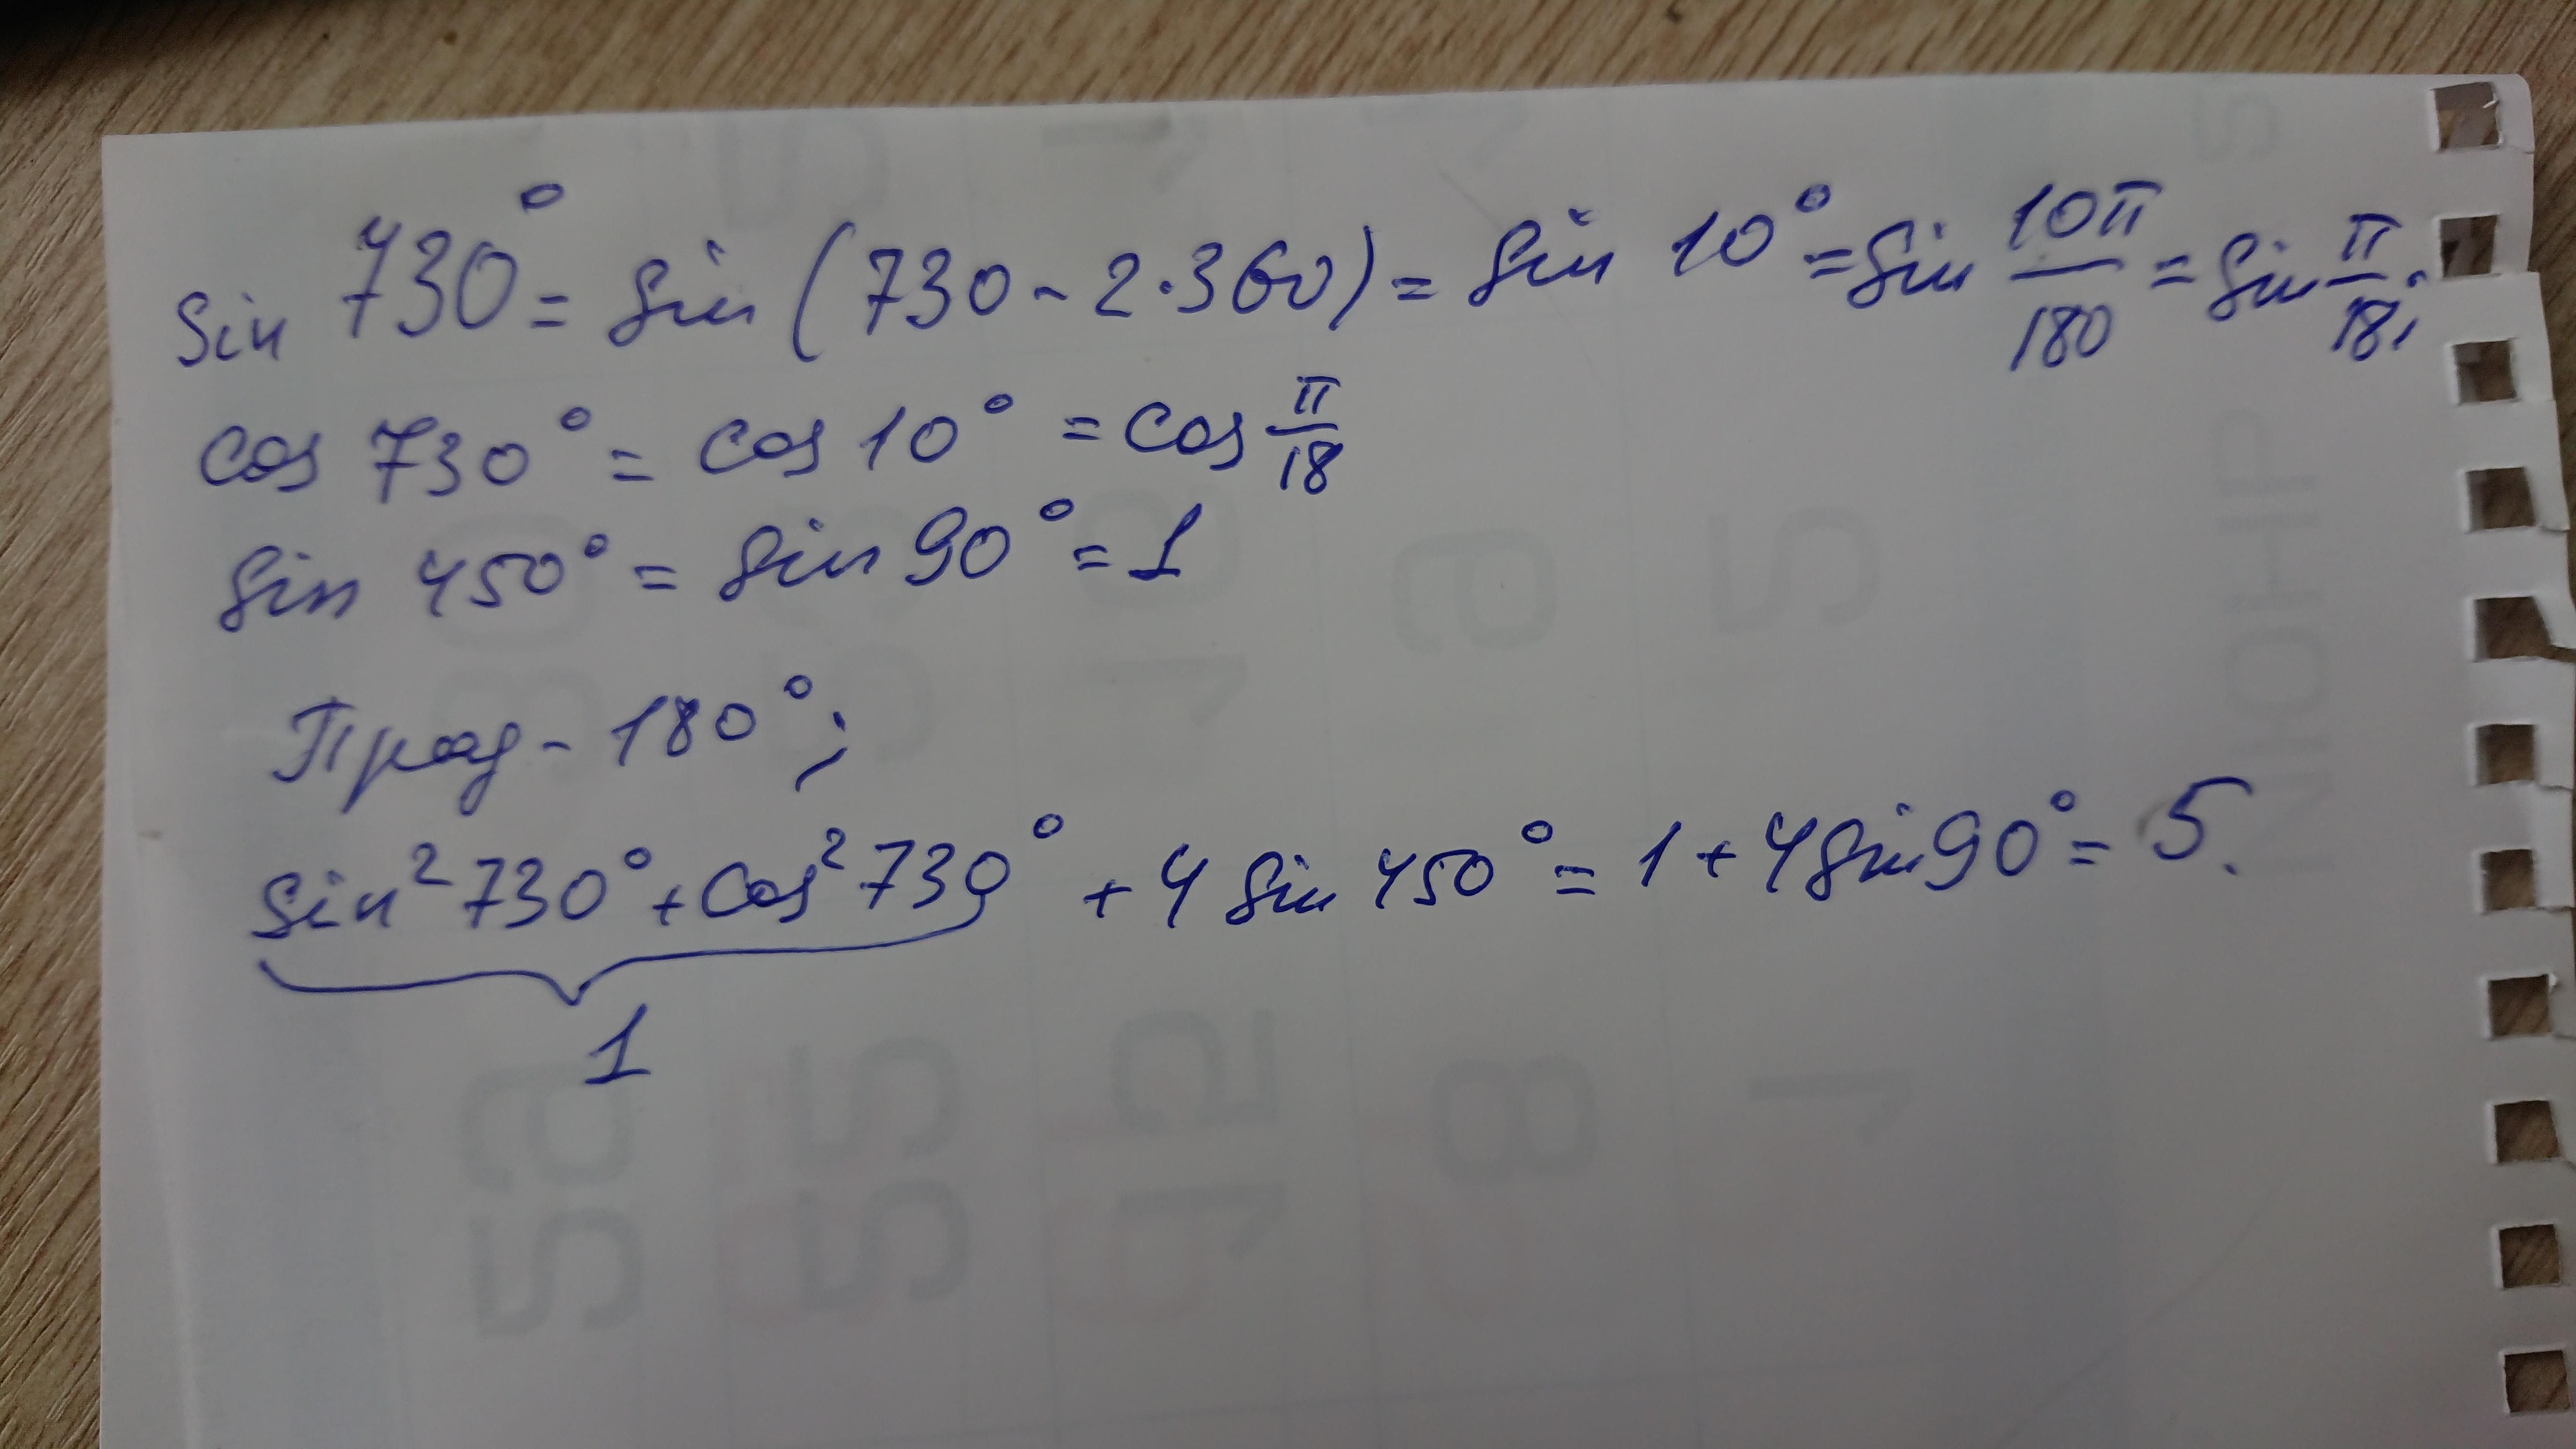 sin 730° = sin (730 - 2·360) = sin 10° = sin 10π/180 = sin π/18;
cos 730° = cos 10° = cos π/18
sin 450° = sin 90° = 1
π рад - 180°;
sin² 730° + cos² 730° + 4 sin 450° = 1 + 4 sin 90° = 5.
1